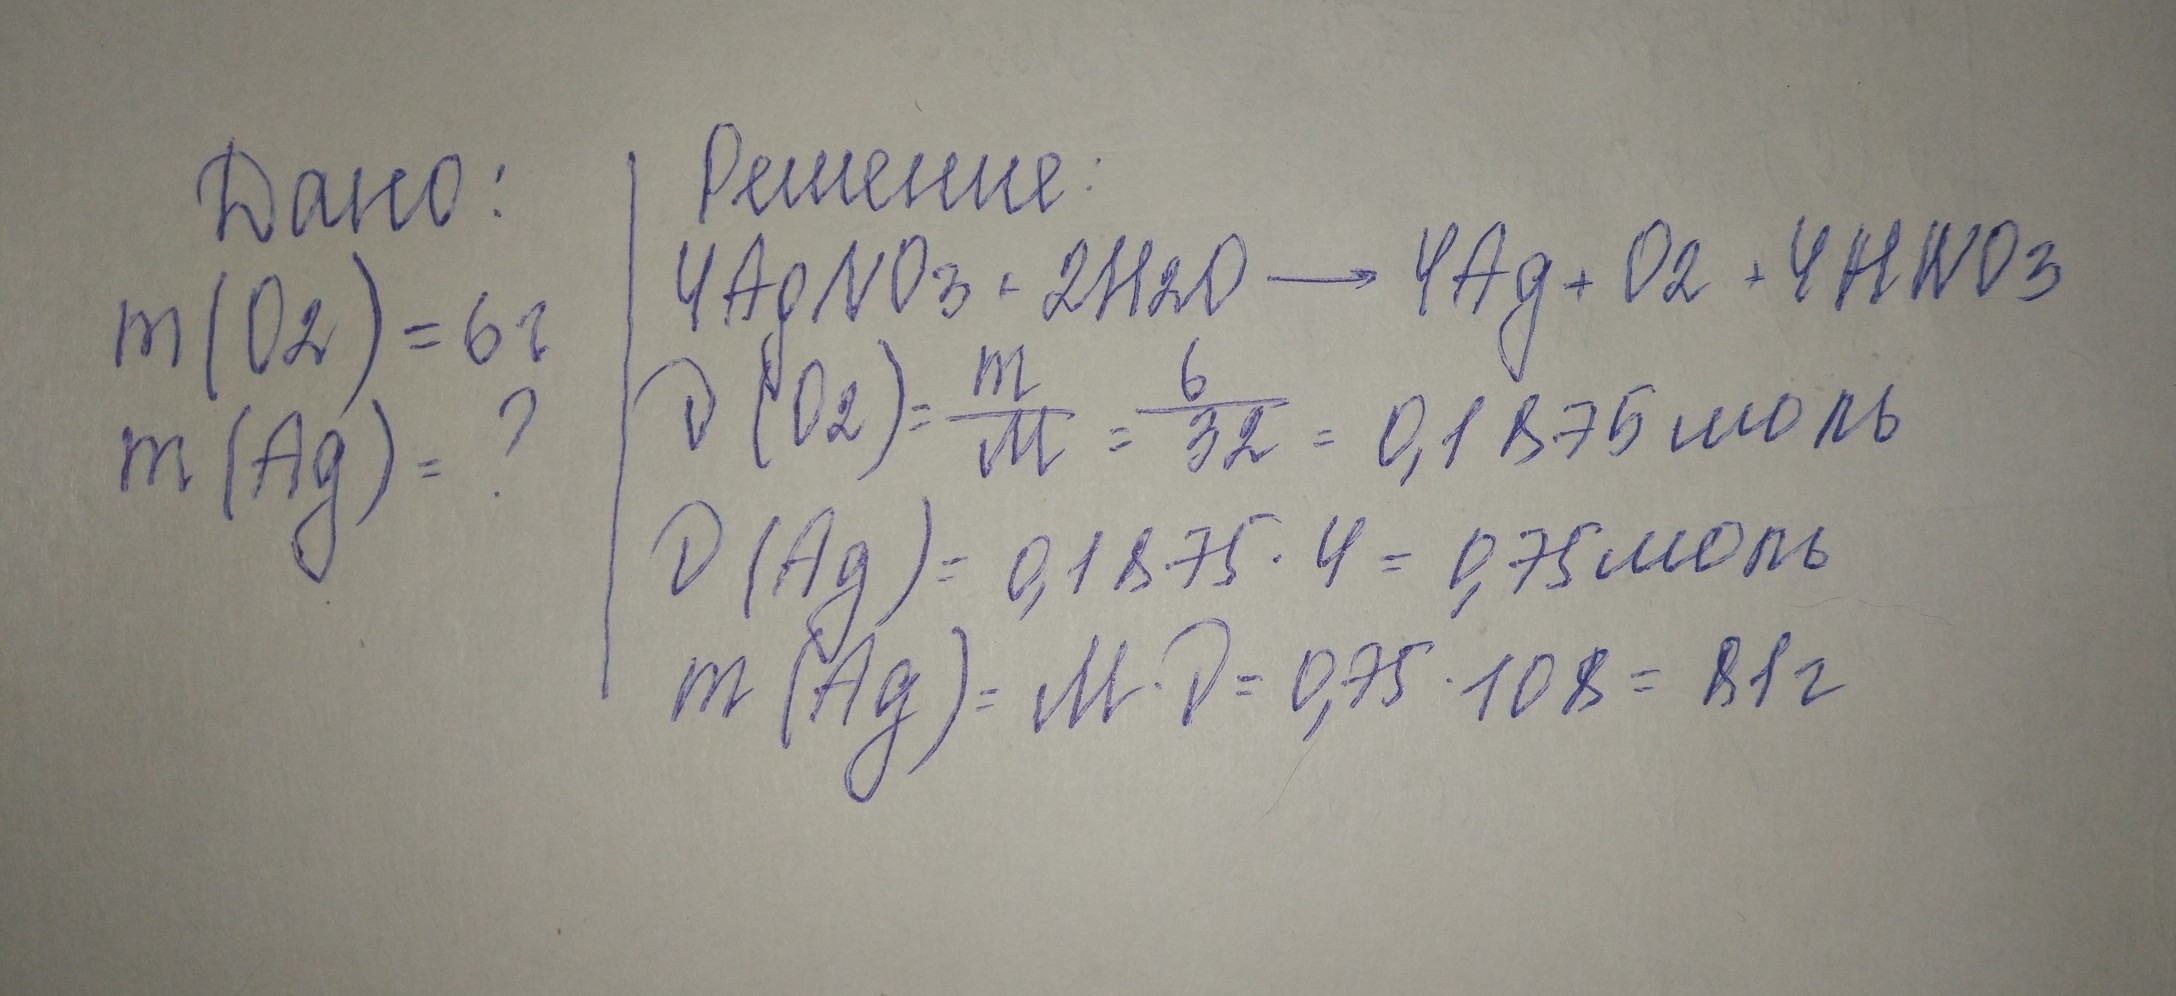 Дано:
m(O2) = 6г
m(Ag) = ?
Решение:
4AgNO3 + 2H2O → 4Ag + O2 + 4HNO3
ν(O2) = m/M = 6/32 = 0,1875 моль
ν(Ag) = 0,1875 · 4 = 0,75 моль
m(Ag) = M · ν = 0,75 · 108 = 81г